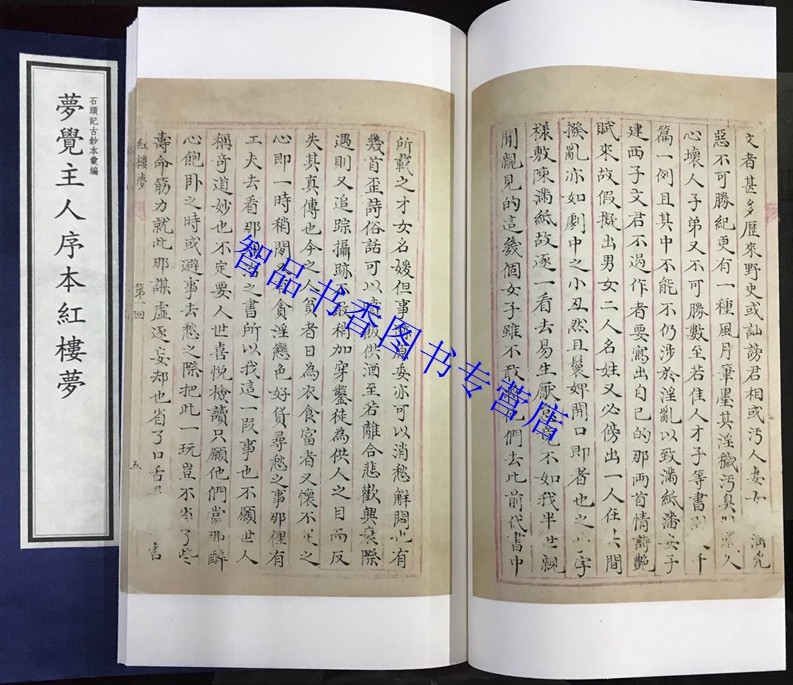 石頭記古鈔本彙編
夢覺主人序本紅樓夢
文者甚多歷來野史或訕謗君相或污人妻女
惡不可勝紀更有一種風月筆墨其淫穢污臭 人
心壞人子弟又不可勝數至若佳人才子等書 千
篇一例且其中不能不仍涉於淫亂以致滿紙潘安子
建西子文君不過作者要寫出自己的那兩首情詩艷
賦來故假擬出男女二人名姓又必傍出一人任 間
撥亂亦如劇中之小丑然且鬟婢開口即者也之 字
樣敷陳滿紙故逐一看去易生厭 不如我半世親
聞覩見的這幾個女子雖不敢 他們去此前代書中
所載之才女名媛但事 妄亦可以消愁解悶也有
幾首歪詩俗話可以 飯供酒至若離合悲歡興衰際
遇則又追踪攝跡不敢稍加穿鑿徒為供人之目而反
失其真傳也今之人貧者日為衣食富者又懷不足之
心即一時稍閒 有貪淫戀色好貨尋愁之事那裡有
工夫去看那 之書所以我這一段事也不願世人
稱奇道妙也不定要人世喜悅檢讀只願他們當那醉
心飽卧之時或避事去愁之際把此一玩豈不省了些
壽命筋力就此那謀虛逐妄却也省了口舌 言
紅樓夢 第一回 五
智品书香图书专营店